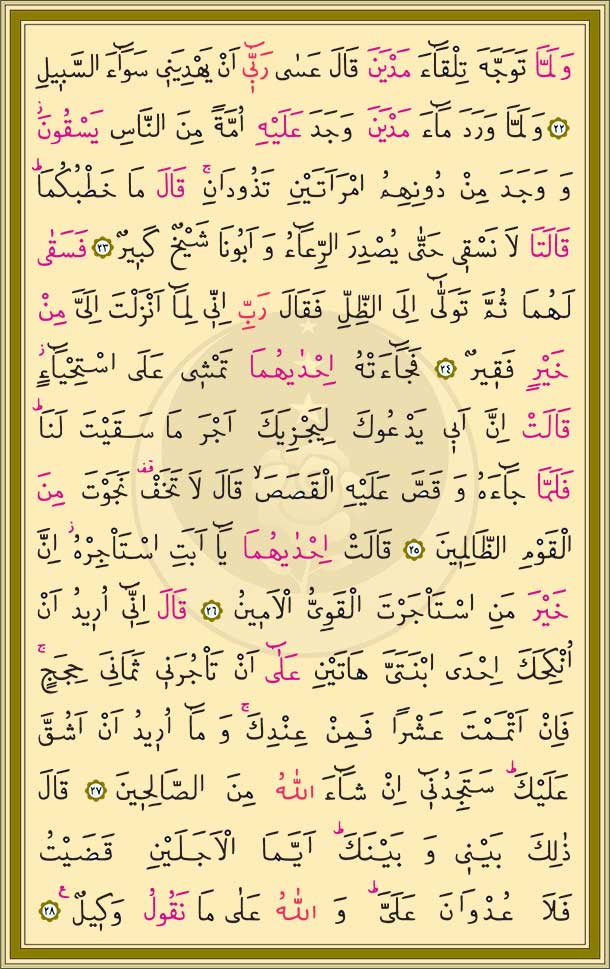 وَلَمَّا تَوَجَّهَ تِلْقَٓاءَ مَدْيَنَ قَالَ عَسٰى رَبّٖٓى اَنْ يَهْدِيَنٖى سَوَٓاءَ السَّبٖيلِ
﴿٢٢﴾ وَلَمَّا وَرَدَ مَٓاءَ مَدْيَنَ وَجَدَ عَلَيْهِ اُمَّةً مِنَ النَّاسِ يَسْقُونَۘ
وَ وَجَدَ مِنْ دُونِهِمُ امْرَاَتَيْنِ تَذُودَانِۚ قَالَ مَا خَطْبُكُمَاؕ
قَالَتَا لَا نَسْقٖى حَتّٰى يُصْدِرَ الرِّعَٓاءُ وَ اَبُونَا شَيْخٌ كَبٖيرٌ ﴿٢٣﴾ فَسَقٰى
لَهُمَا ثُمَّ تَوَلّٰٓى اِلَى الظِّلِّ فَقَالَ رَبِّ اِنّٖى لِمَٓا اَنْزَلْتَ اِلَىَّ مِنْ
خَيْرٍ فَقٖيرٌ ﴿٢٤﴾ فَجَٓاءَتْهُ اِحْدٰيهُمَا تَمْشٖى عَلَى اسْتِحْيَٓاءٍؗ
قَالَتْ اِنَّ اَبٖى يَدْعُوكَ لِيَجْزِيَكَ اَجْرَ مَا سَقَيْتَ لَنَاؕ
فَلَمَّا جَٓاءَهُ وَ قَصَّ عَلَيْهِ الْقَصَصَۙ قَالَ لَا تَخَفْ۠ نَجَوْتَ مِنَ
الْقَوْمِ الظَّالِمٖينَ ﴿٢٥﴾ قَالَتْ اِحْدٰيهُمَا يَٓا اَبَتِ اسْتَاْجِرْهُؗ اِنَّ
خَيْرَ مَنِ اسْتَاْجَرْتَ الْقَوِىُّ الْاَمٖينُ ﴿٢٦﴾ قَالَ اِنّٖٓى اُرٖيدُ اَنْ
اُنْكِحَكَ اِحْدَى ابْنَتَىَّ هَاتَيْنِ عَلٰٓى اَنْ تَاْجُرَنٖى ثَمَانِىَ حِجَجٍۚ
فَاِنْ اَتْمَمْتَ عَشْرًا فَمِنْ عِنْدِكَۚ وَ مَٓا اُرٖيدُ اَنْ اَشُقَّ
عَلَيْكَؕ سَتَجِدُنٖٓى اِنْ شَٓاءَ اللّٰهُ مِنَ الصَّالِحٖينَ ﴿٢٧﴾ قَالَ
ذٰلِكَ بَيْنٖى وَ بَيْنَكَؕ اَيَّمَا الْاَجَلَيْنِ قَضَيْتُ
فَلَا عُدْوَانَ عَلَىَّؕ وَ اللّٰهُ عَلٰى مَا نَقُولُ وَكٖيلٌ ع ﴿٢٨﴾